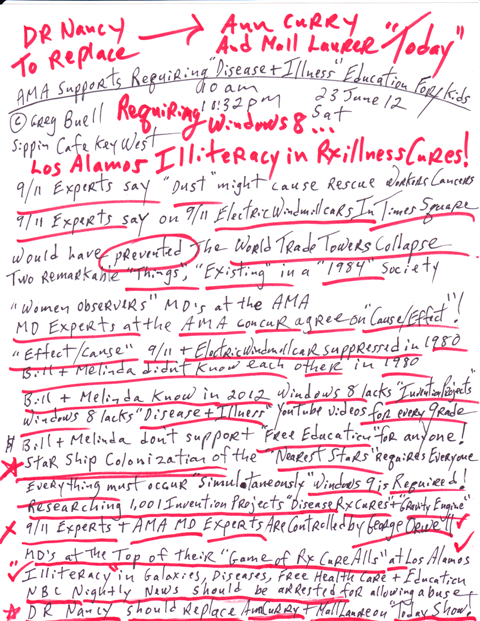 DR NANCY → Ann CURRY
To Replace And Matt Laurer "Today"
AMA Supports Requiring "Disease + Illness" Education For/kids
© Greg Buell 10 am 23 June 12
Requiring 10:32 pm Sat
Sippin Cafe Key West Windows 8...
Los Alamos Illiteracy in RxillnessCures!
9/11 Experts say "Dust" might cause Rescue Workers Cancers
9/11 Experts say on 9/11 ElectricWindmillcars In Times Square
would have prevented The World Trade Towers Collapse
Two Remarkable "Things", "Existing" in a "1984" Society
"Women Observers" MD's at the AMA
MD Experts at the AMA concur agree on "Cause/Effect"!
"Effect/cause" 9/11 + ElectricWindmillcar suppressed in 1980
Bill + Melinda didn't know each other in 1980
Bill + Melinda Know in 2012 Windows 8 lacks "Invention Projects"
Windows 8 lacks "Disease + Illness" YouTube videos for every grade
Bill + Melinda don't support "Free Education" for anyone!
Star Ship Colonization of the "Nearest Stars" requires Everyone
Everything must occur "Simultaneously" Windows 9 is Required!
Researching 1,001 Invention Projects "Disease Rx Cures" + "Gravity Engine"
9/11 Experts + AMA MD Experts Are Controlled by George Orwell
MD's at the Top of their "Game of Rx Cure Alls" at Los Alamos
Illiteracy in Galaxies, Diseases, Free Health Care + Education
NBC Nightly News should be arrested for allowing abuse
DR Nancy should Replace AnnCurry + Matt Laure on "Today Show.